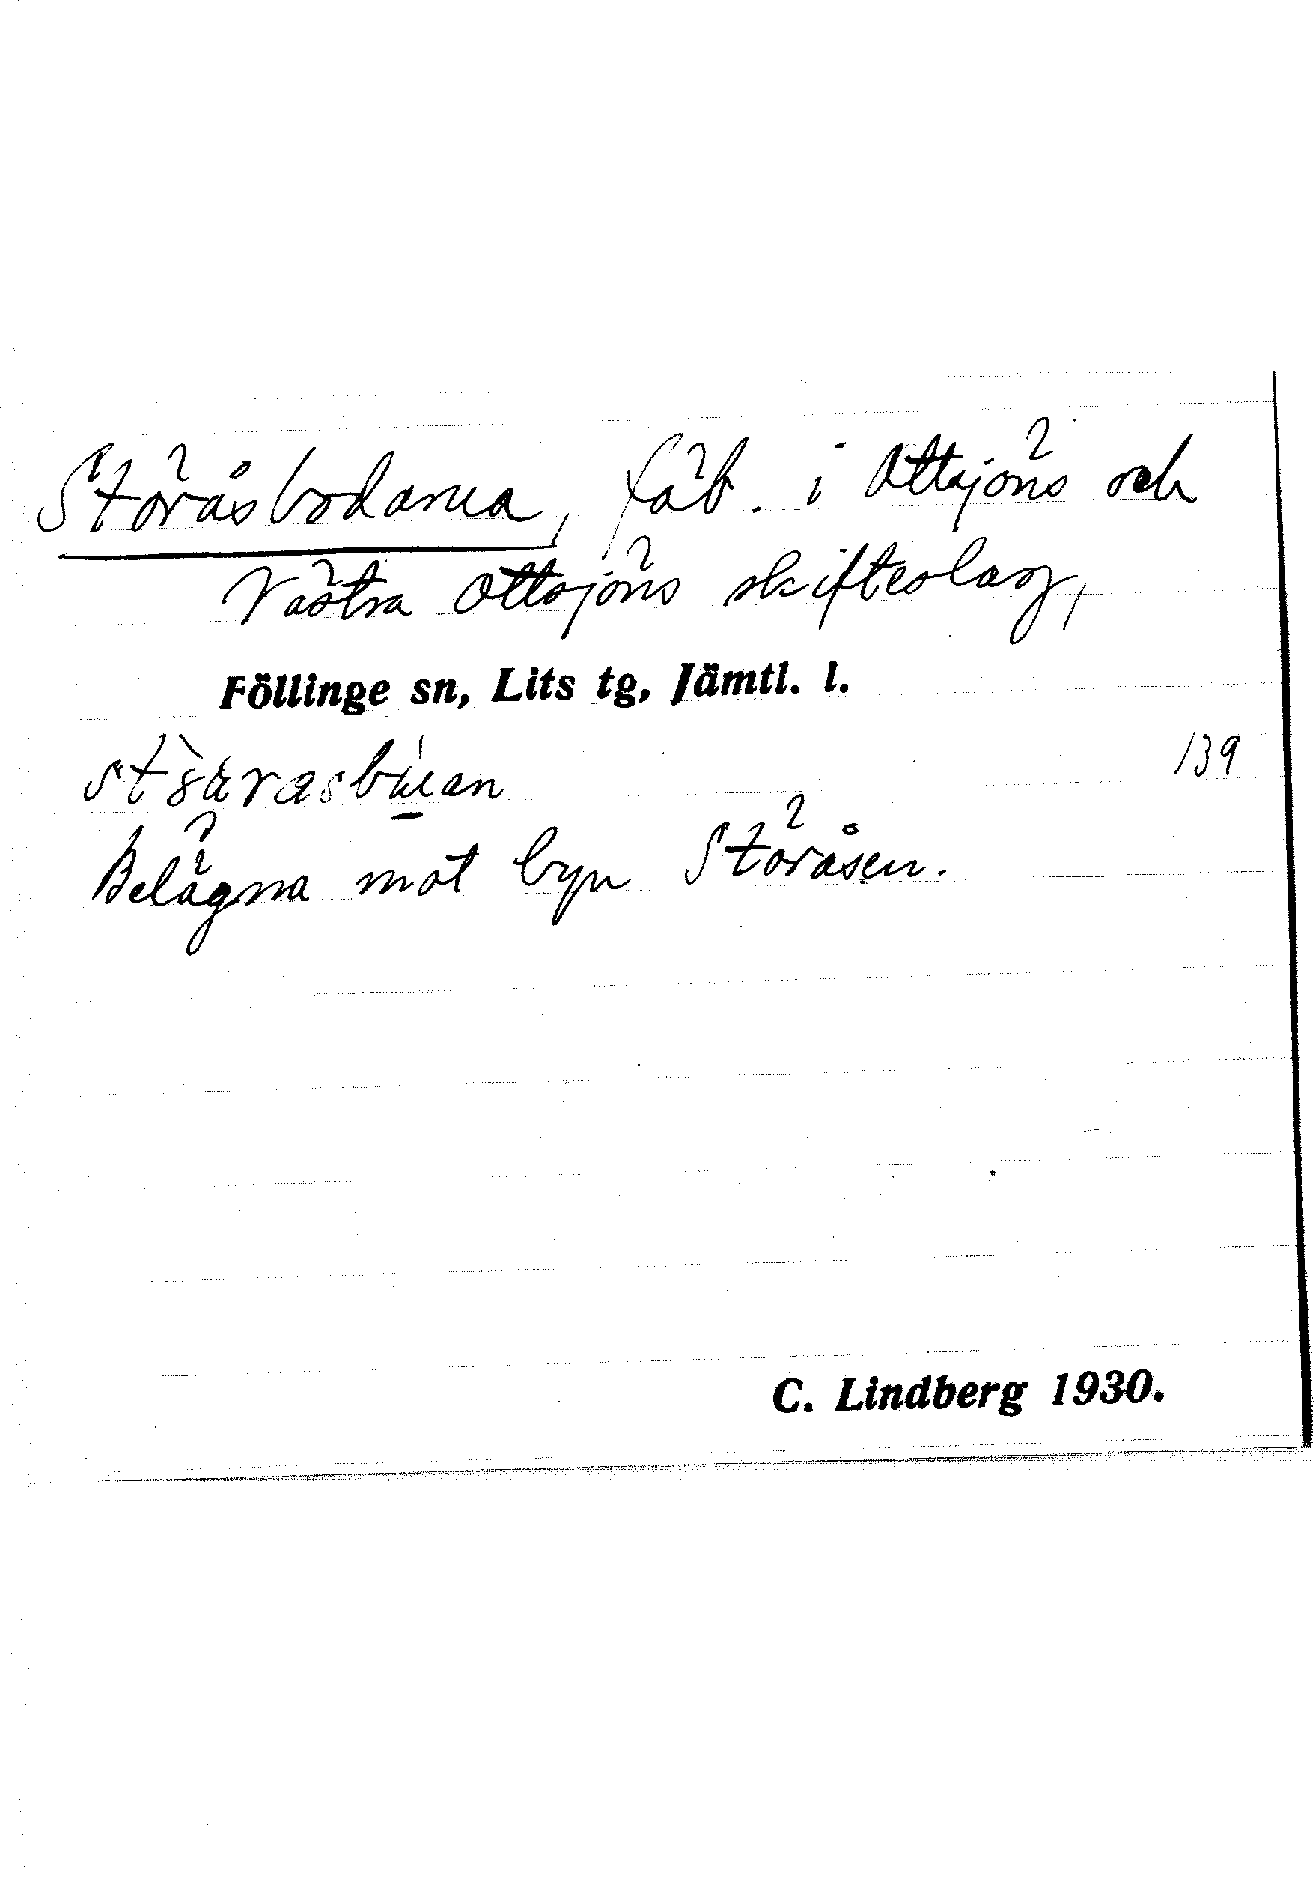 Störåsbodarna, fäb. i Ottsjöns och
Västra Ottsjöns skifteslag,
Föllinge sn, Lits tg, Jämtl. l.
139
Belägna mot byn Störåsen.
C. Lindberg 1930.